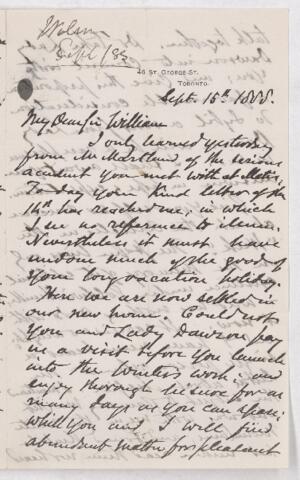 Wilson
Sept/88
46 ST. GEORGE ST.
TORONTO.
Sept. 15th 1888.
My Dear Sir William
I only learned yesterday
from Mr Martland of the serious
accident you met with at Metis.
To day your kind letter of the
14th has reached me; in which
I see no reference to it.
Nevertheless it must have
undone much of the good of
your long vacation holiday.
Here we are now settled in
our new home. Could not
you and Lady Dawson pay
us a visit before you launch
into the winter's work; and
enjoy thorough leisure for as
many days as you can spare;
while you and I will find
abundant matter for pleasant